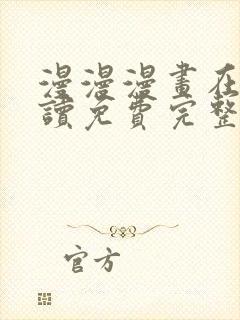 漫漫漫畫在
讀免費完整
官方